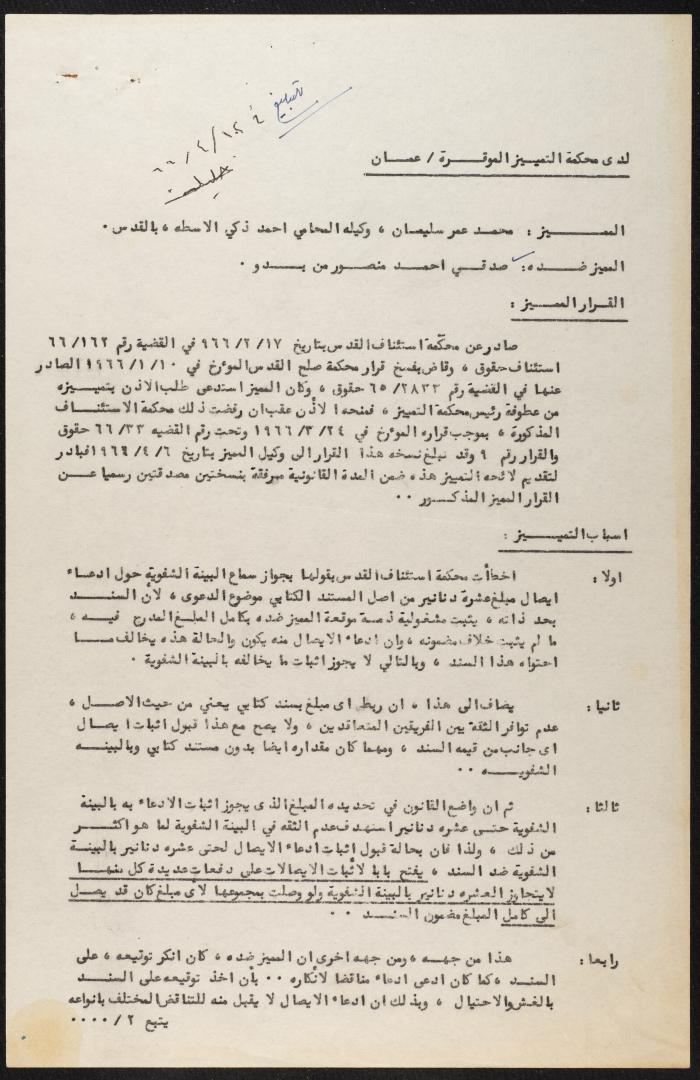 تبليغ
٦٦/٤/١٢
لدى محكمة التمييز الموقـــرة / عمــان
المميــــــز : محمد عمر سليمان ، وكيله المحامي احمد ذكي الاسطه ، بالقدس .
المميز ضــده : صدقــي احمــد منصــور من بــدو .
القرار المميــز :
صادر عن محكمة استئناف القدس بتاريخ ٩٦٦/٢/١٧ في القضية رقم ٦٦/١٦٢
استئناف حقوق ، وقاض بفسخ قرار محكمة صلح القدس المؤرخ في ١٩٦٦/١/١٠ الصادر
عنها في القضية رقم ٦٥/٢٨٣٢ حقوق ، وكان المميز استدعى طلب الاذن بتمييزه
من عطوفة رئيس محكمة التمييز ، فمنحه الاذن عقب ان رفضت ذلك محكمة الاستئنــاف
المذكورة ، بموجب قراره المؤرخ في ١٩٦٦/٣/٢٤ وتحت رقم القضيه ٦٦/٣٣ حقوق
والقرار رقم ٩ وقد تبلغ نسخه هذا القرار الى وكيل المميز بتاريخ ١٩٦٦/٤/٦ فبادر
لتقديم لائحه التمييز هذه ضمن المدة القانونية مرفقة بنسختين مصدقتين رسميا عــن
القرار المميز المذكــور . .
اسباب التميــــيز :
اولا : اخطأت محكمة استئناف القدس بقولها بجواز سماع البينة الشفوية حول ادعــاء
ايصال مبلغ عشرة دنانير من اصل المستند الكتابي موضوع الدعوى ، لأن السنــد
بحد ذاته ، يثبت مشغولية ذمــة موقعة المميز ضده بكامل المبلغ المدرج فيــه ،
ما لم يثبت خلاف مضمونه ، وان ادعاء الايصال منه يكون والحالة هذه يخالف مــا
احتواه هذا السند ، وبالتالي لا يجوز اثبات ما يخالفه بالبينة الشفوية .
ثانيا : يضاف الى هذا ، ان ربط اى مبلغ بسند كتابي يعني من حيث الاصــل ،
عدم توافر الثقة بين الفريقين المتعاقدين ، ولا يصح مع هذا قبول اثبات ايصــال
اى جانب من قيمه السند ، ومهما كان مقداره ايضا بدون مستند كتابي وبالبينــه
الشفويــــه . .
ثالثا : ثم ان واضع القانون في تحديده المبلغ الذى يجوز اثبات الادعاء به بالبينة
الشفوية حتــى عشره دنانير استهدف عدم الثقه في البينة الشفوية لما هو اكثــر
من ذلك ، ولذا فان بحالة قبول اثبات ادعاء الايصال لحتى عشره دنانير بالبينــة
الشفوية ضد السند ، يفتح بابا لاثبات الايصالات على دفعات عديدة كل منهــا
لا يتجاوز العشره دنانير بالبينة الشفوية ولو وصلت بمجموعها لأى مبلغ كان قد يصــل
الى كامل المبلغ مضمون السنــد . .
رابعا : هذا من جهــه ، ومن جهه اخرى ان المميز ضده ، كان انكر توقيعه ، على
السند ، كما كان ادعى ادعاء مناقضا لانكاره . . بأن اخذ توقيعه على السنــد
بالغش والاحتيال ، وبذلك ان ادعاء الايصال لا يقبل منه للتناقض المختلف بانواعه
يتبع ٢ / ٠٠٠٠